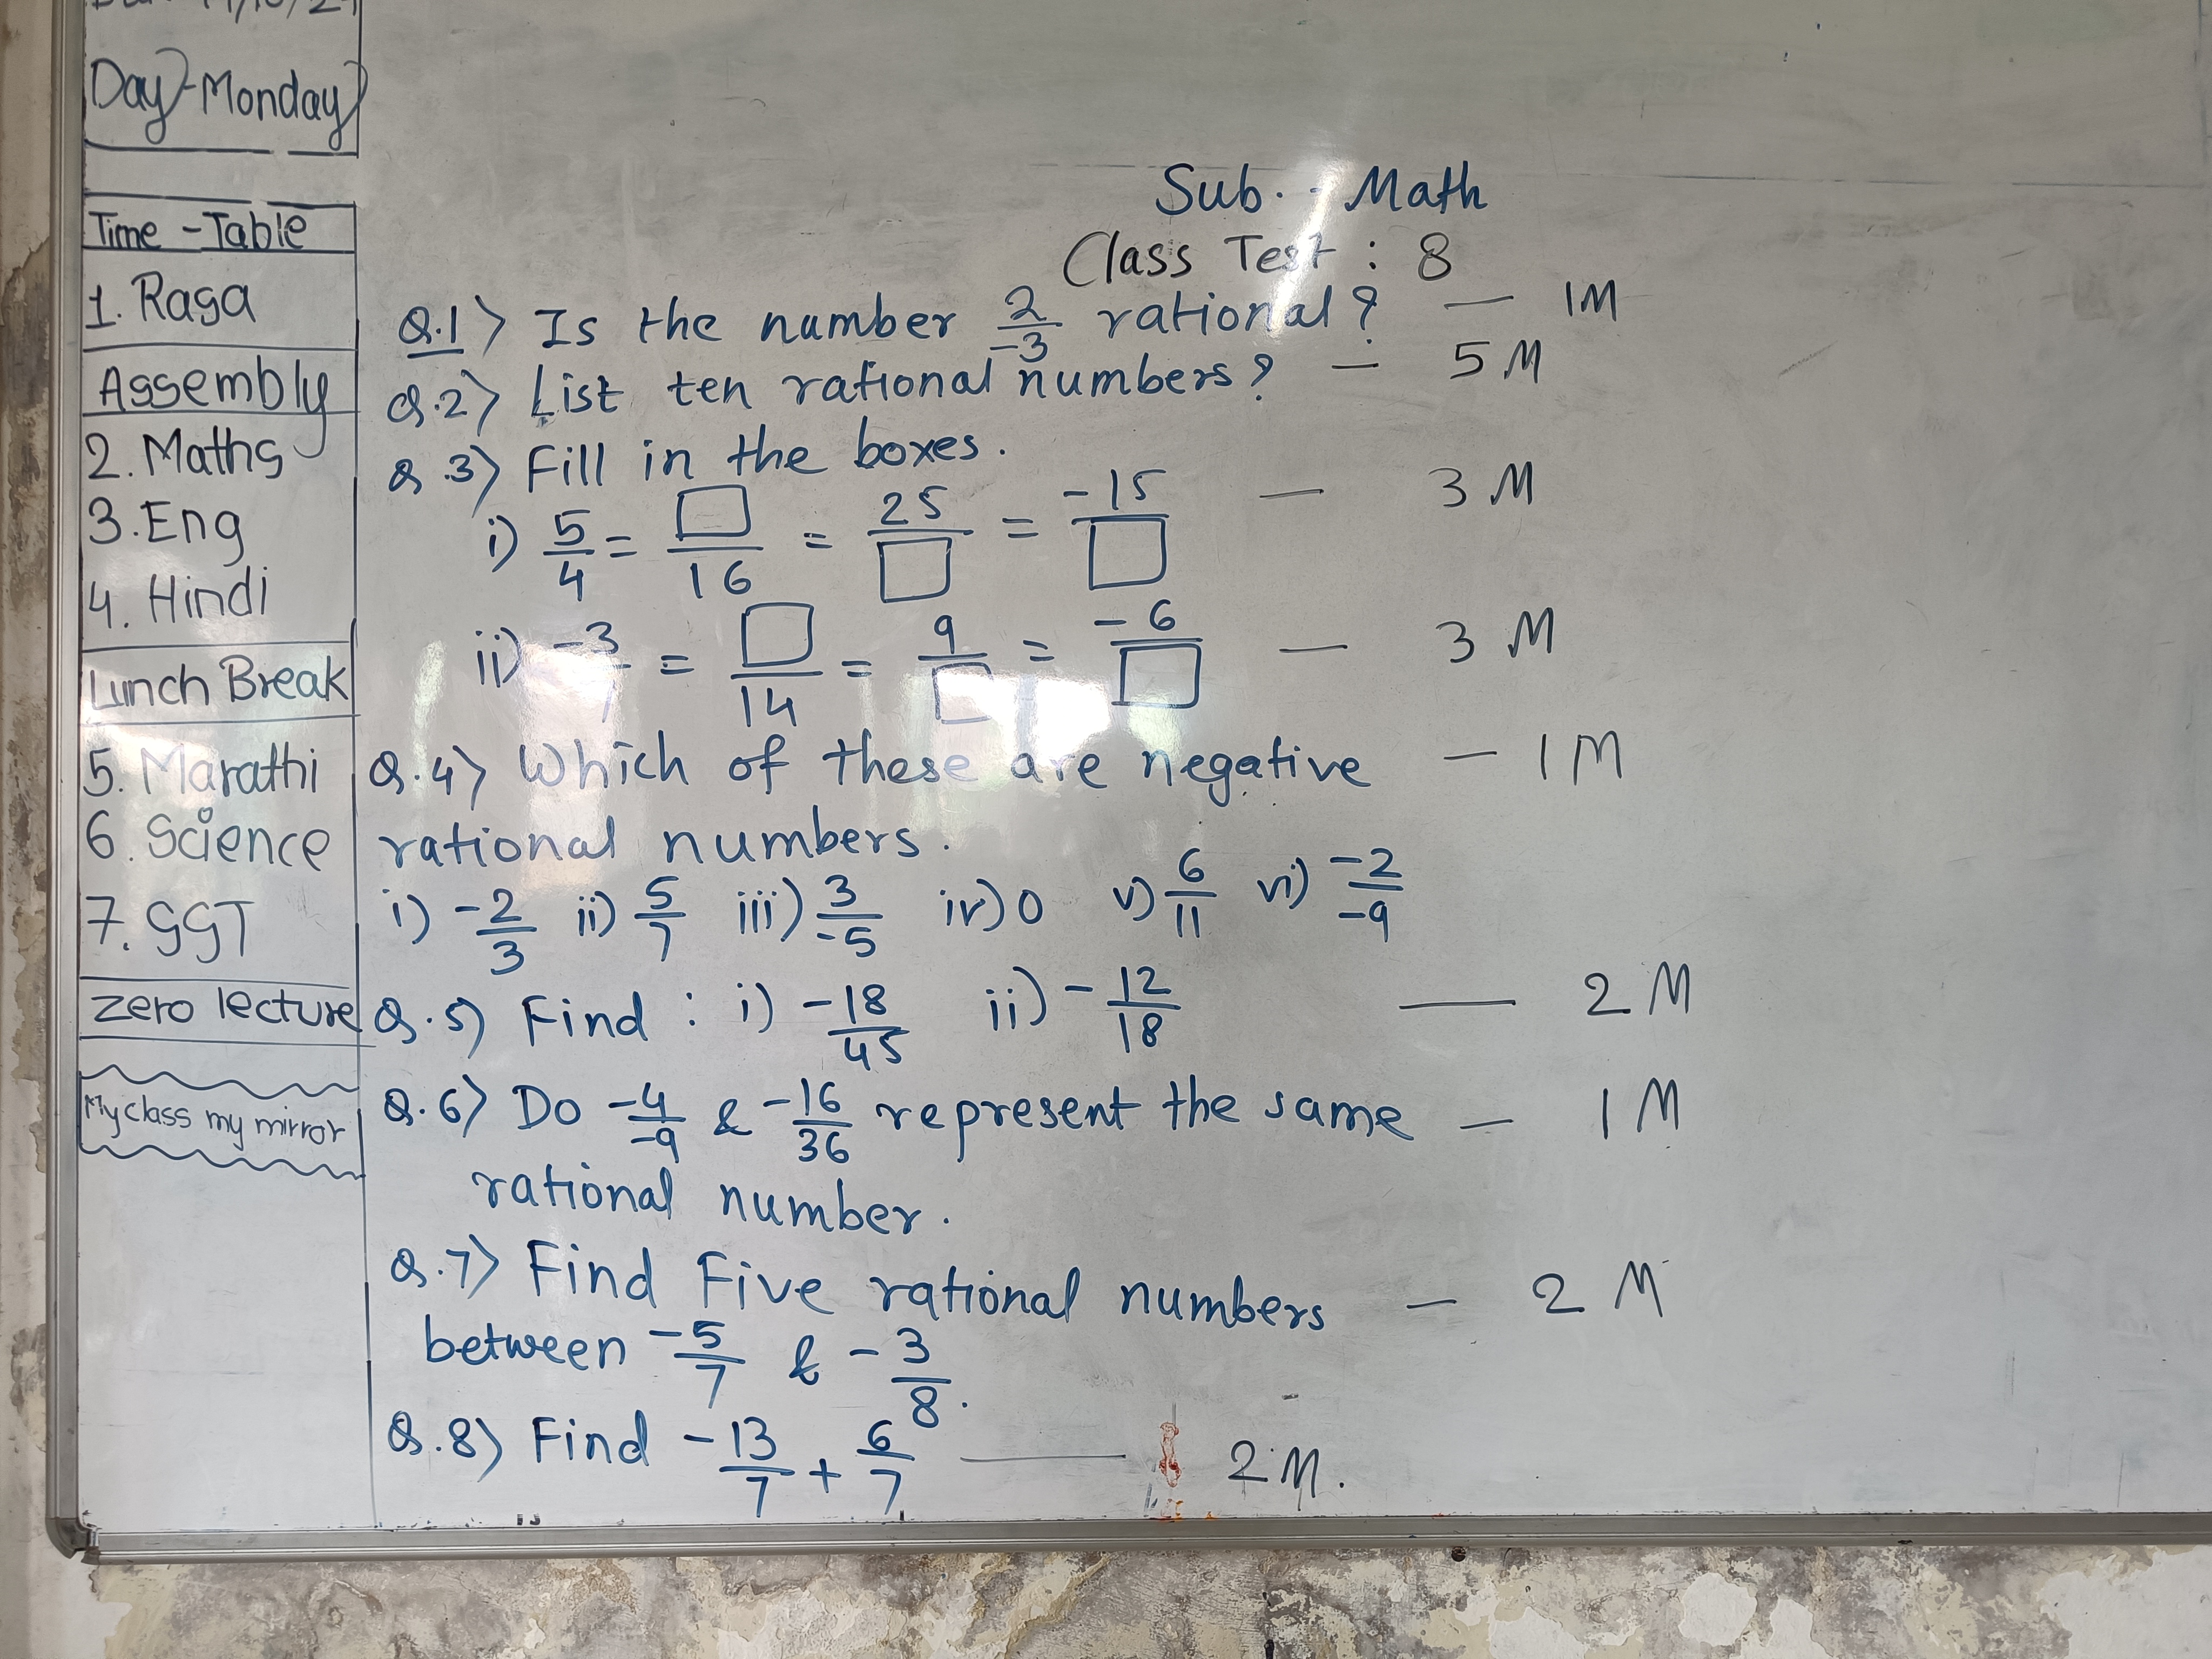 Day - Monday
Time - Table
1. Raga
Assembly
2. Maths
3. Eng
4. Hindi
Lunch Break
5. Marathi
6. Science
7. GGT
Zero lecture
My class my mirror
Sub. - Math
Class Test : 8
Q.1> Is the number 2/-3 rational? — 1M
Q.2> List ten rational numbers? — 5 M
Q.3> Fill in the boxes.
i) 5/4 = □/16 = 25/□ = -15/□ — 3 M
ii) -3/7 = □/14 = 9/□ = -6/□ — 3 M
Q.4> Which of these are negative — 1 M
rational numbers.
i) -2/3 ii) 5/7 iii) 3/-5 iv) 0 v) 6/11 vi) -2/-9
Q.5) Find : i) -18/45 ii) -12/18 — 2 M
Q.6> Do -4/-9 & -16/36 represent the same — 1 M
rational number.
Q.7> Find Five rational numbers — 2 M
between -5/7 & -3/8.
Q.8) Find -13/7 + 6/7 — 2 M.